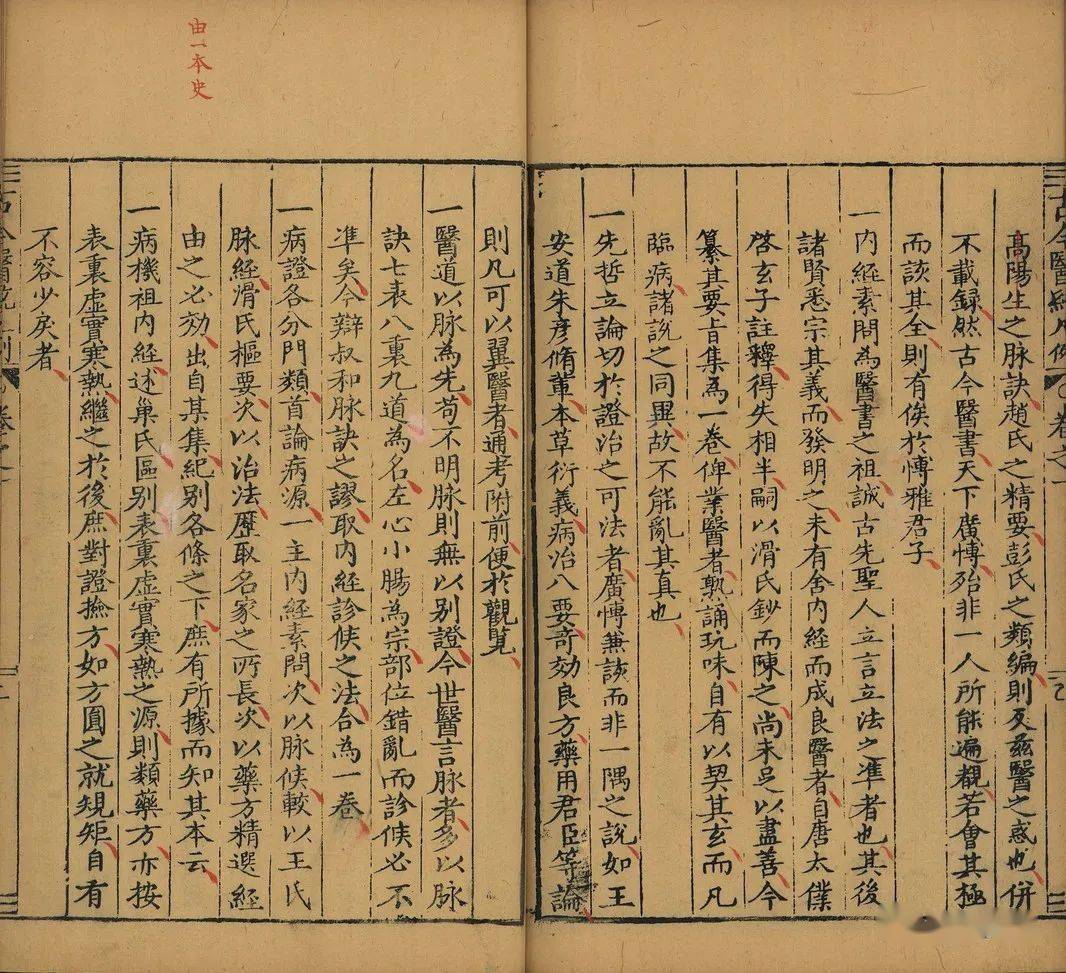 高陽生之脉訣趙氏之精要彭氏之類編則反兹醫之惑也併
不載録然古今醫書天下廣愽殆非一人所能遍覩若會其極
而該其全則有俟於愽雅君子
一内經素問為醫書之祖誠古先聖人立言立法之凖者也其後
諸賢悉宗其義而發明之未有舍内經而成良醫者自唐太僕
啓玄子註釋得失相半嗣以滑氏鈔而陳之尚未足以盡善今
纂其要旨集為一卷俾業醫者熟誦玩味自有以契其玄而凡
臨病諸說之同異故不能亂其真也
一先哲立論切於證治之可法者廣愽兼該而非一隅之說如王
安道朱彦脩輩本草衍義病治八要竒効良方藥用君臣等論
則凡可以翼醫者通考附前便於觀覧
一醫道以脉為先苟不明脉則無以别證今世醫言脉者多以脉
訣七表八裏九道為名左心小腸為宗部位錯亂而診候必不
凖矣今辯叔和脉訣之謬取内經診候之法合為一卷
一病證各分門類首論病源一主内經素問次以脉候較以王氏
脉經滑氏樞要次以治法歷取名家之所長次以藥方精選經
由之必効出自某集紀别各條之下庶有所據而知其本云
一病機祖内經述巢氏區别表裏虚實寒熱之源則類藥方亦按
表裏虚實寒熱繼之於後庶對證撿方如方圓之就規矩自有
不容少戾者
由一本史
古今醫統凡例
卷之一